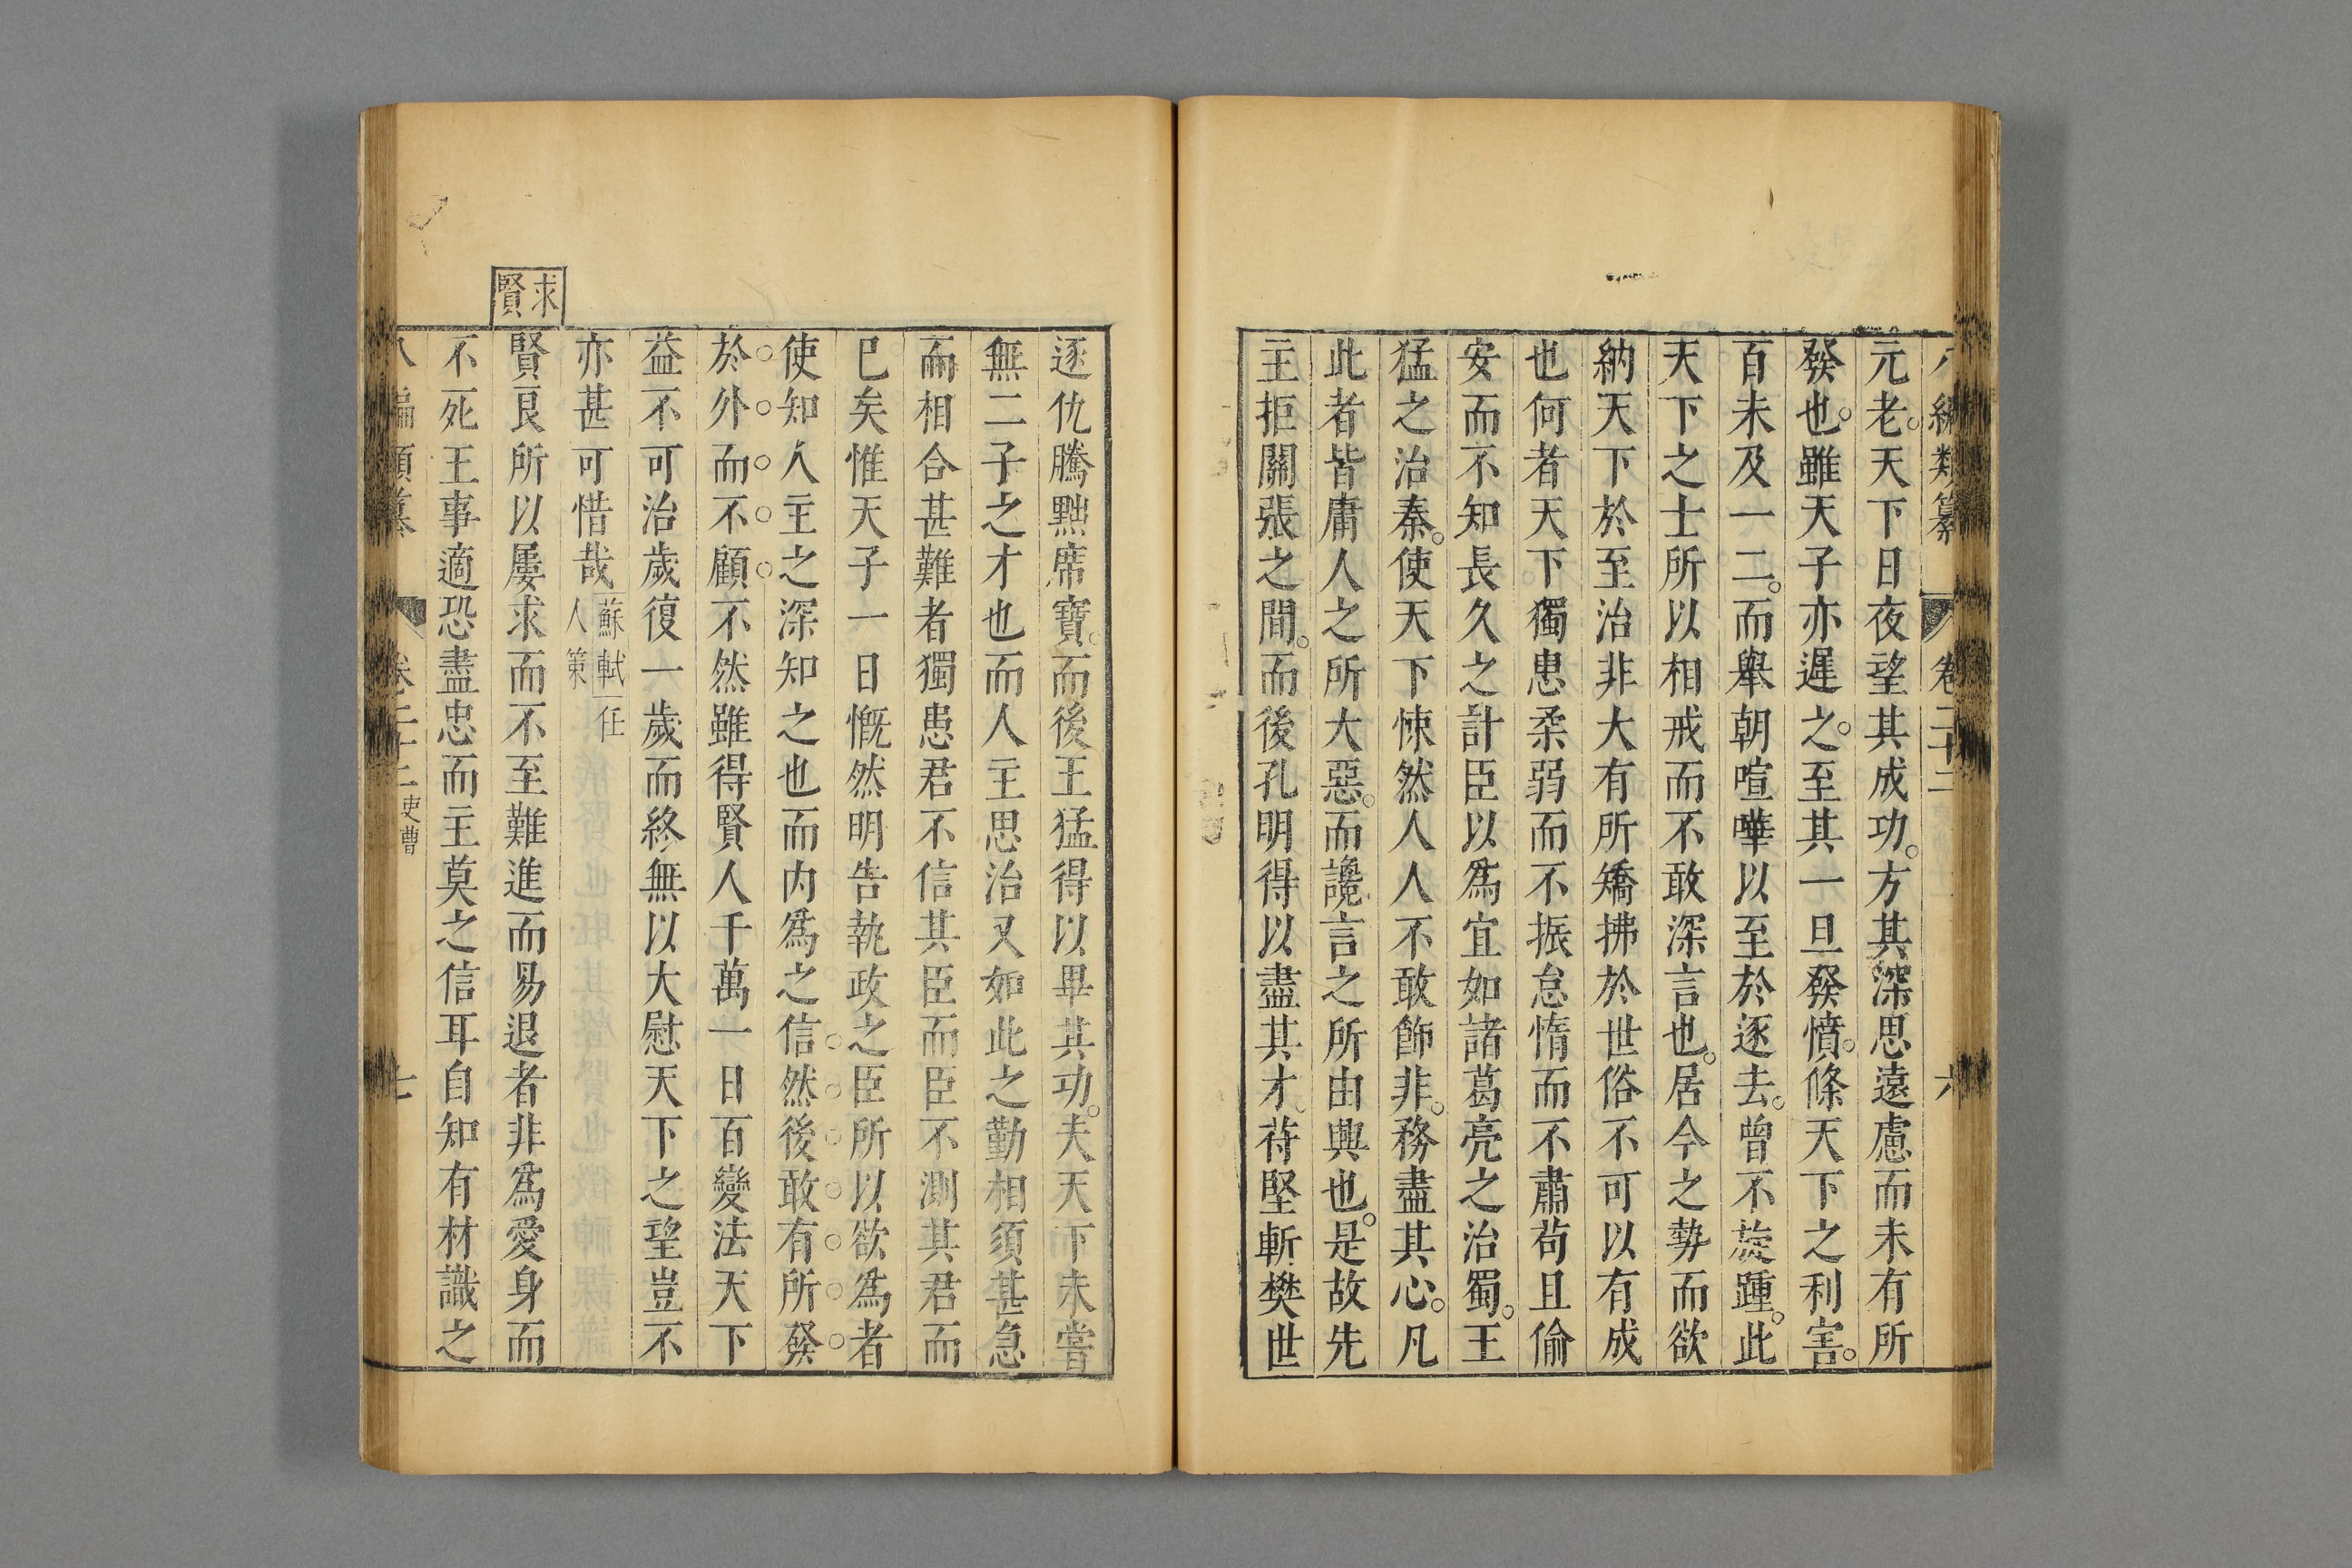 八編類纂 卷二十二 六
元老天下日夜望其成功方其深思遠慮而未有所
發也雖天子亦遲之至其一旦發憤條天下之利害
百未及一二而舉朝喧嘩以至於逐去曾不旋踵此
天下之士所以相戒而不敢深言也居今之勢而欲
納天下於至治非大有所矯拂於世俗不可以有成
也何者天下獨患柔弱而不振怠惰而不肅苟且偷
安而不知長久之計臣以為宜如諸葛亮之治蜀王
猛之治秦使天下悚然人人不敢飾非務盡其心凡
此者皆庸人之所大惡而讒言之所由興也是故先
主拒關張之間而後孔明得以盡其才苻堅斬樊世
逐仇騰黜席寶而後王猛得以畢其功夫天下未嘗
無二子之才也而人主思治又如此之勤相須甚急
而相合甚難者獨患君不信其臣而臣不測其君而
已矣惟天子一日慨然明告執政之臣所以欲為者
使知人主之深知之也而内為之信然後敢有所發
於外而不顧不然雖得賢人千萬一日百變法天下
益不可治歲復一歲而終無以大慰天下之望豈不
亦甚可惜哉 蘇軾任人策
求賢
賢良所以屢求而不至難進而易退者非為愛身而
不死王事適恐盡忠而主莫之信耳自知有材識之
卷二十二 吏曹 七